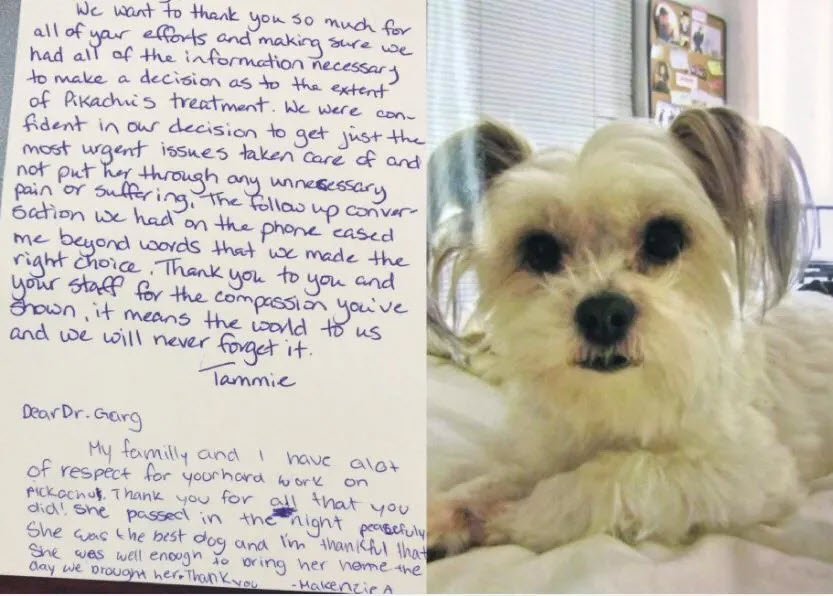 We want to thank you so much for
all of your efforts and making sure we
had all of the information necessary
to make a decision as to the extent
of Pikachu's treatment. We were con-
fident in our decision to get just the
most urgent issues taken care of and
not put her through any unnecessary
pain or suffering. The follow up conver-
sation we had on the phone eased
me beyond words that we made the
right choice. Thank you to you and
your staff for the compassion you've
shown, it means the world to us
and we will never forget it.
Tammie
Dear Dr. Garg
My familly and I have alot
of respect for your hard work on
Pickachu. Thank you for all that you
did! She passed in the night peacefuly
She was the best dog and I'm thankful that
She was well enough to bring her home the
day we brought her. Thank you -Makenzie A